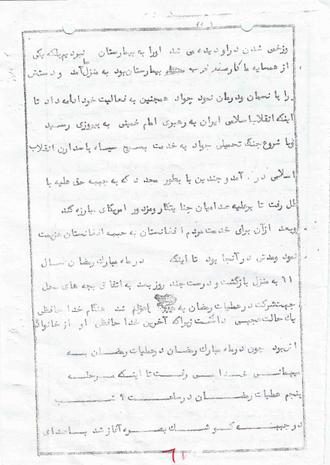 وزخمی شدن در او دیده می شد اورا به بیمارستان نبودیم بلکه یکی
از همسایه ما کارمند بیمارستان بود به منزل آمد و دستش
را پانسمان ودرمان نمود جواد همچنین به فعالیت خود ادامه داد تا
اینکه انقلاب اسلامی ایران به رهبری امام خمینی به پیروزی رسید
وبا شروع جنگ تحمیلی جواد به خدمت بسیج سپاه پاسداران انقلاب
اسلامی در آمد و چندین با بطور محدد که به جبهه حق علیه با
طل رفت تا بر علیه صدامیان جنایتکار و مزدور امریکای مبارزه کند
وبعد از آن برای خدمت مردم افغانستان به جبهه افغانستان عزیمت
نمود ومدتی در آنجا بود تا اینکه در ماه مبارک رمضان سال
۶۱ به منزل بازگشت و درست چند روز بعد به اتفاق بچه های محل
جهت شرکت در عملیات رمضان به اعزام شد هنگام خدا حافظی
یک حالت عجیبی داشت زیرا که آخرین خدا حافظی او از خانواده
از بود چون در ماه مبارک رمضان در عملیات رمضان به
میهمانی خدا رفت تا اینکه مرحله
پنجم عملیات رمضان در ساعت ۹ شب
در جبهه کوشک بصره آغاز شد با صدای